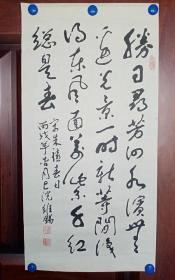 勝日尋芳泗水濱無
邊光景一時新等閒識
得东風面萬紫千紅
總是春
宋朱熹春日
丙戌年